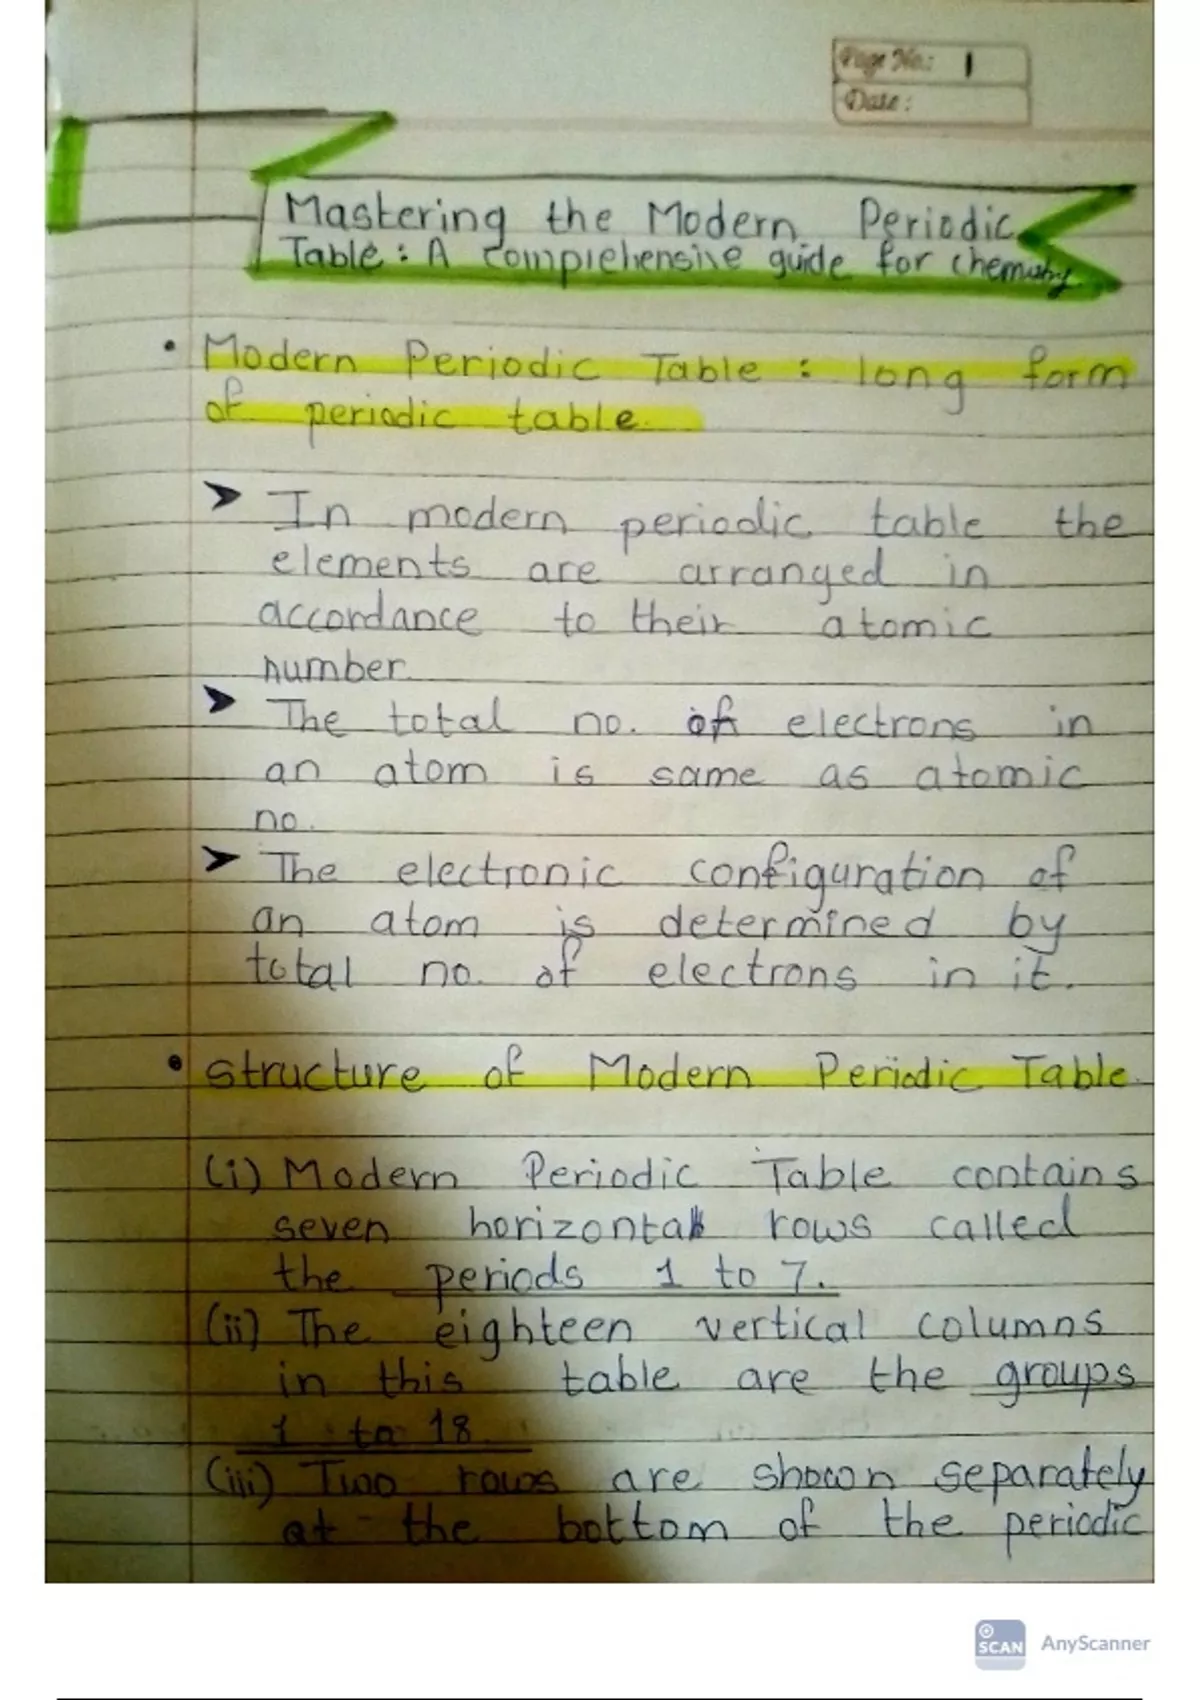 Page No.: 1
Date:
Mastering the Modern Periodic
Table: A comprehensive guide for chemistry
• Modern Periodic Table : long form
of periodic table.
➤ In modern periodic table the
elements are arranged in
accordance to their atomic
number.
➤ The total no. of electrons in
an atom is same as atomic
no.
➤ The electronic configuration of
an atom is determined by
total no. of electrons in it.
• structure of Modern Periodic Table.
(i) Modern Periodic Table contains
seven horizontal rows called
the periods 1 to 7.
(ii) The eighteen vertical columns
in this table are the groups
1 to 18
(iii) Two rows are shown separately
at the bottom of the periodic
SCAN AnyScanner